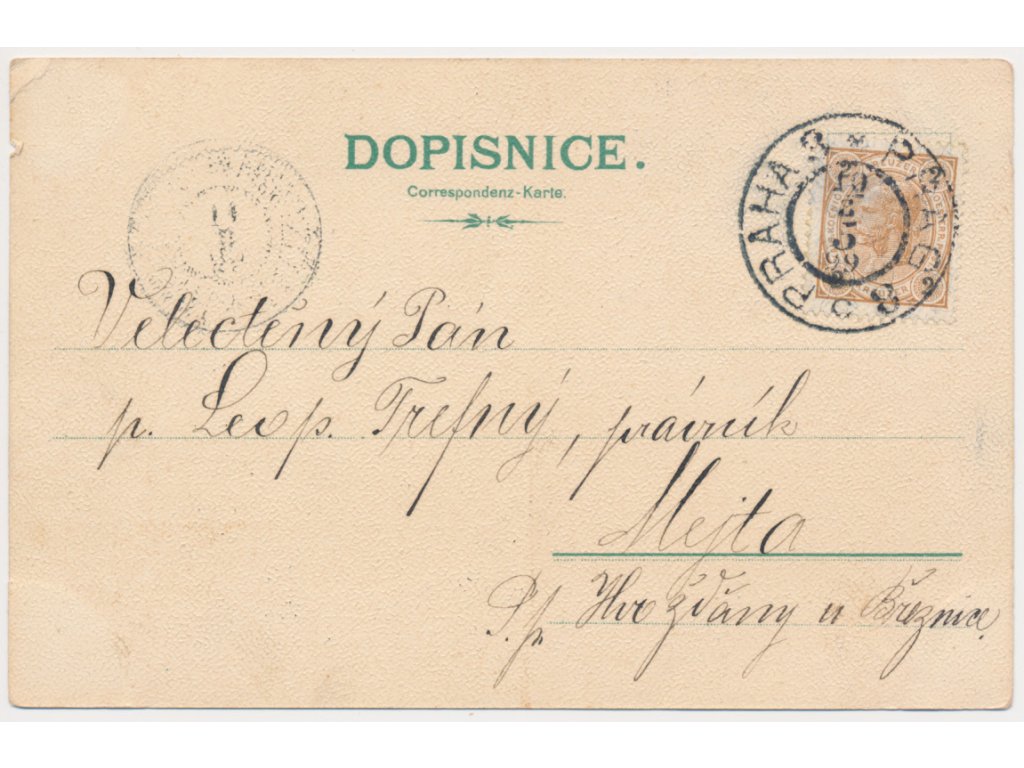 DOPISNICE.
Correspondenz-Karte.
PRAHA 3 * PRAG 3
Velectěný Pán
p. Leop. Trefný, právník
Mejta
P. p. Hvožďany u Březnice.